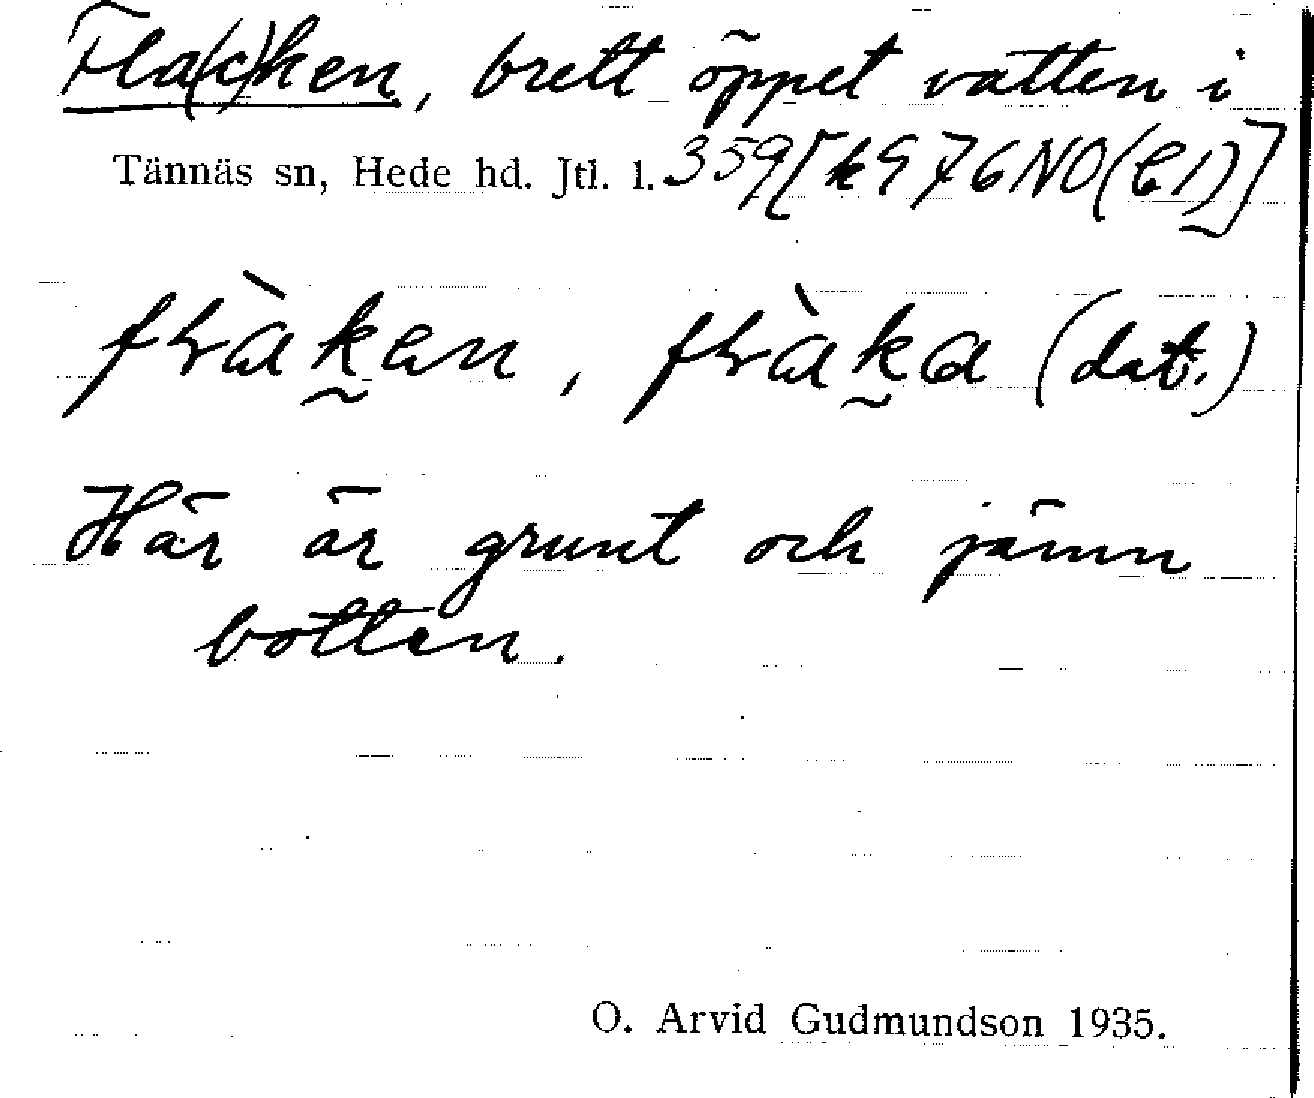 Fla(c)ken, brett öppet vatten i
Tännäs sn, Hede hd. Jtl. l. 359[k976NO(C1)]
flàk̰en, flàk̰a (dat.)
Här är grunt och jämn
botten.
O. Arvid Gudmundson 1935.